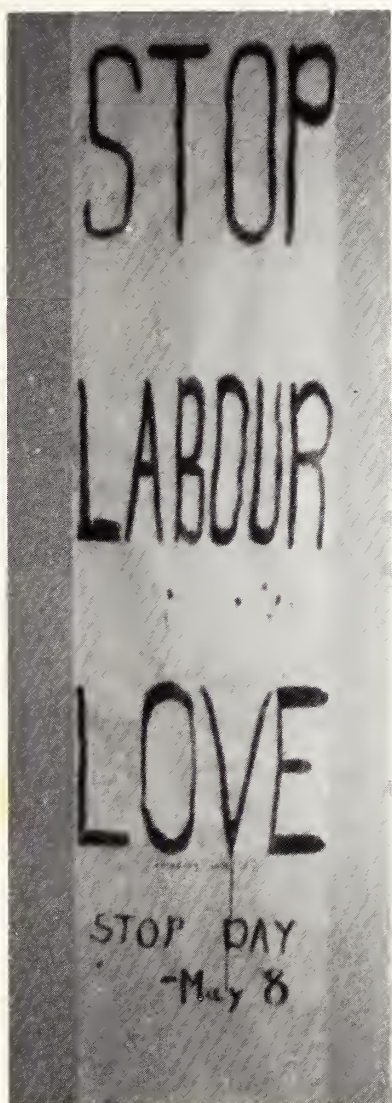 STOP
LABOUR
LOVE
STOP DAY
-May 8